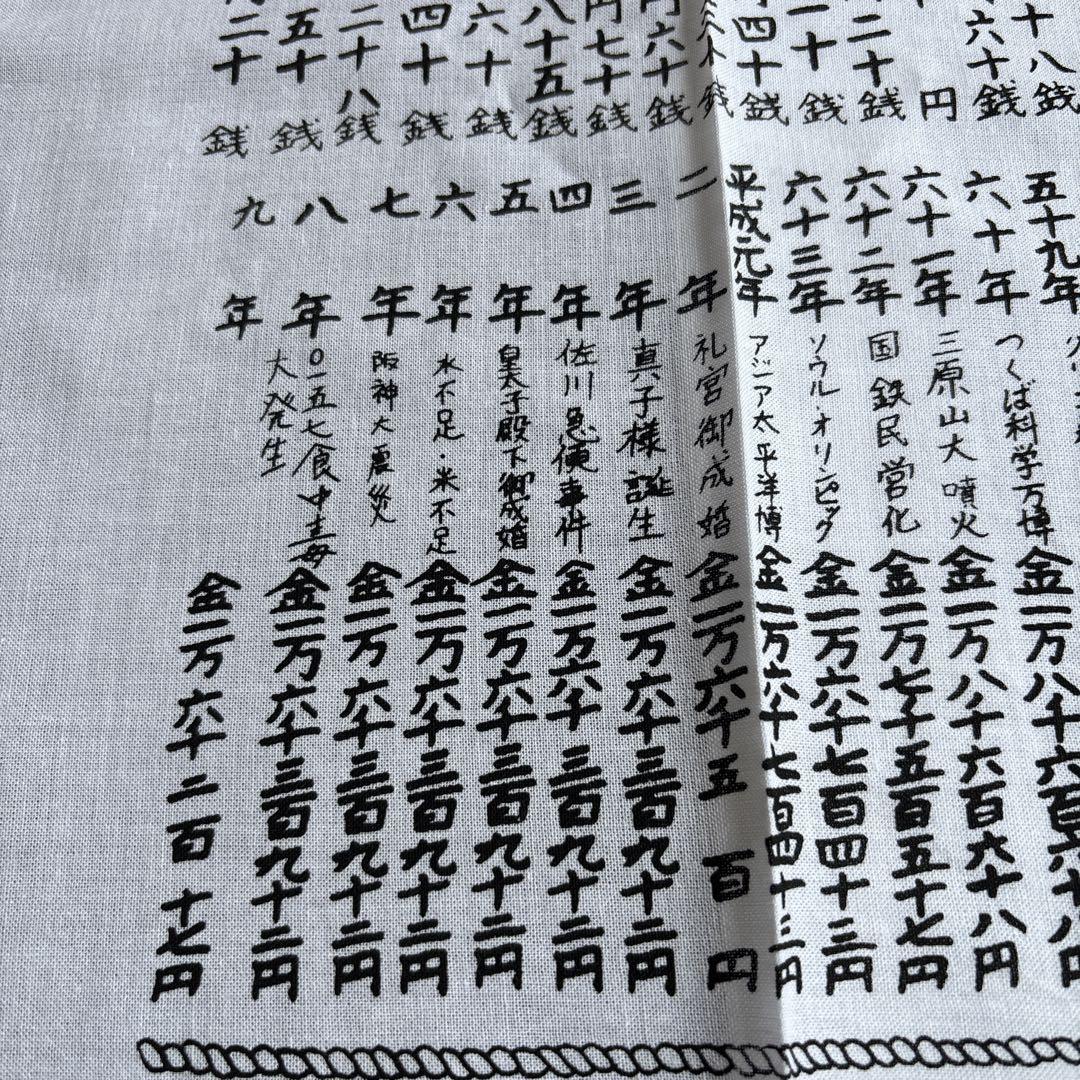 十八銭
六十銭
円
二十銭
一十銭
四十銭
六十銭
円七十銭
八十五銭
六十銭
四十銭
二十八銭
五十銭
二十銭
五十九年
六十年 つくば科学万博 金一万八千六百六十八円
六十一年 三原山大噴火 金一万八千六百六十八円
六十二年 国鉄民営化 金一万七千五百五十七円
六十三年 ソウル・オリンピック 金一万六千七百四十三円
平成元年 アジア太平洋博 金一万六千七百四十三円
二年 礼宮御成婚 金一万六千五百円
三年 真子様誕生 金一万六千三百九十二円
四年 佐川急便事件 金一万六千三百九十二円
五年 皇太子殿下御成婚 金一万六千三百九十二円
六年 水不足・米不足 金一万六千三百九十二円
七年 阪神大震災 金一万六千三百九十二円
八年 O一五七食中毒大発生 金一万六千三百九十二円
九年 金一万六千二百十七円